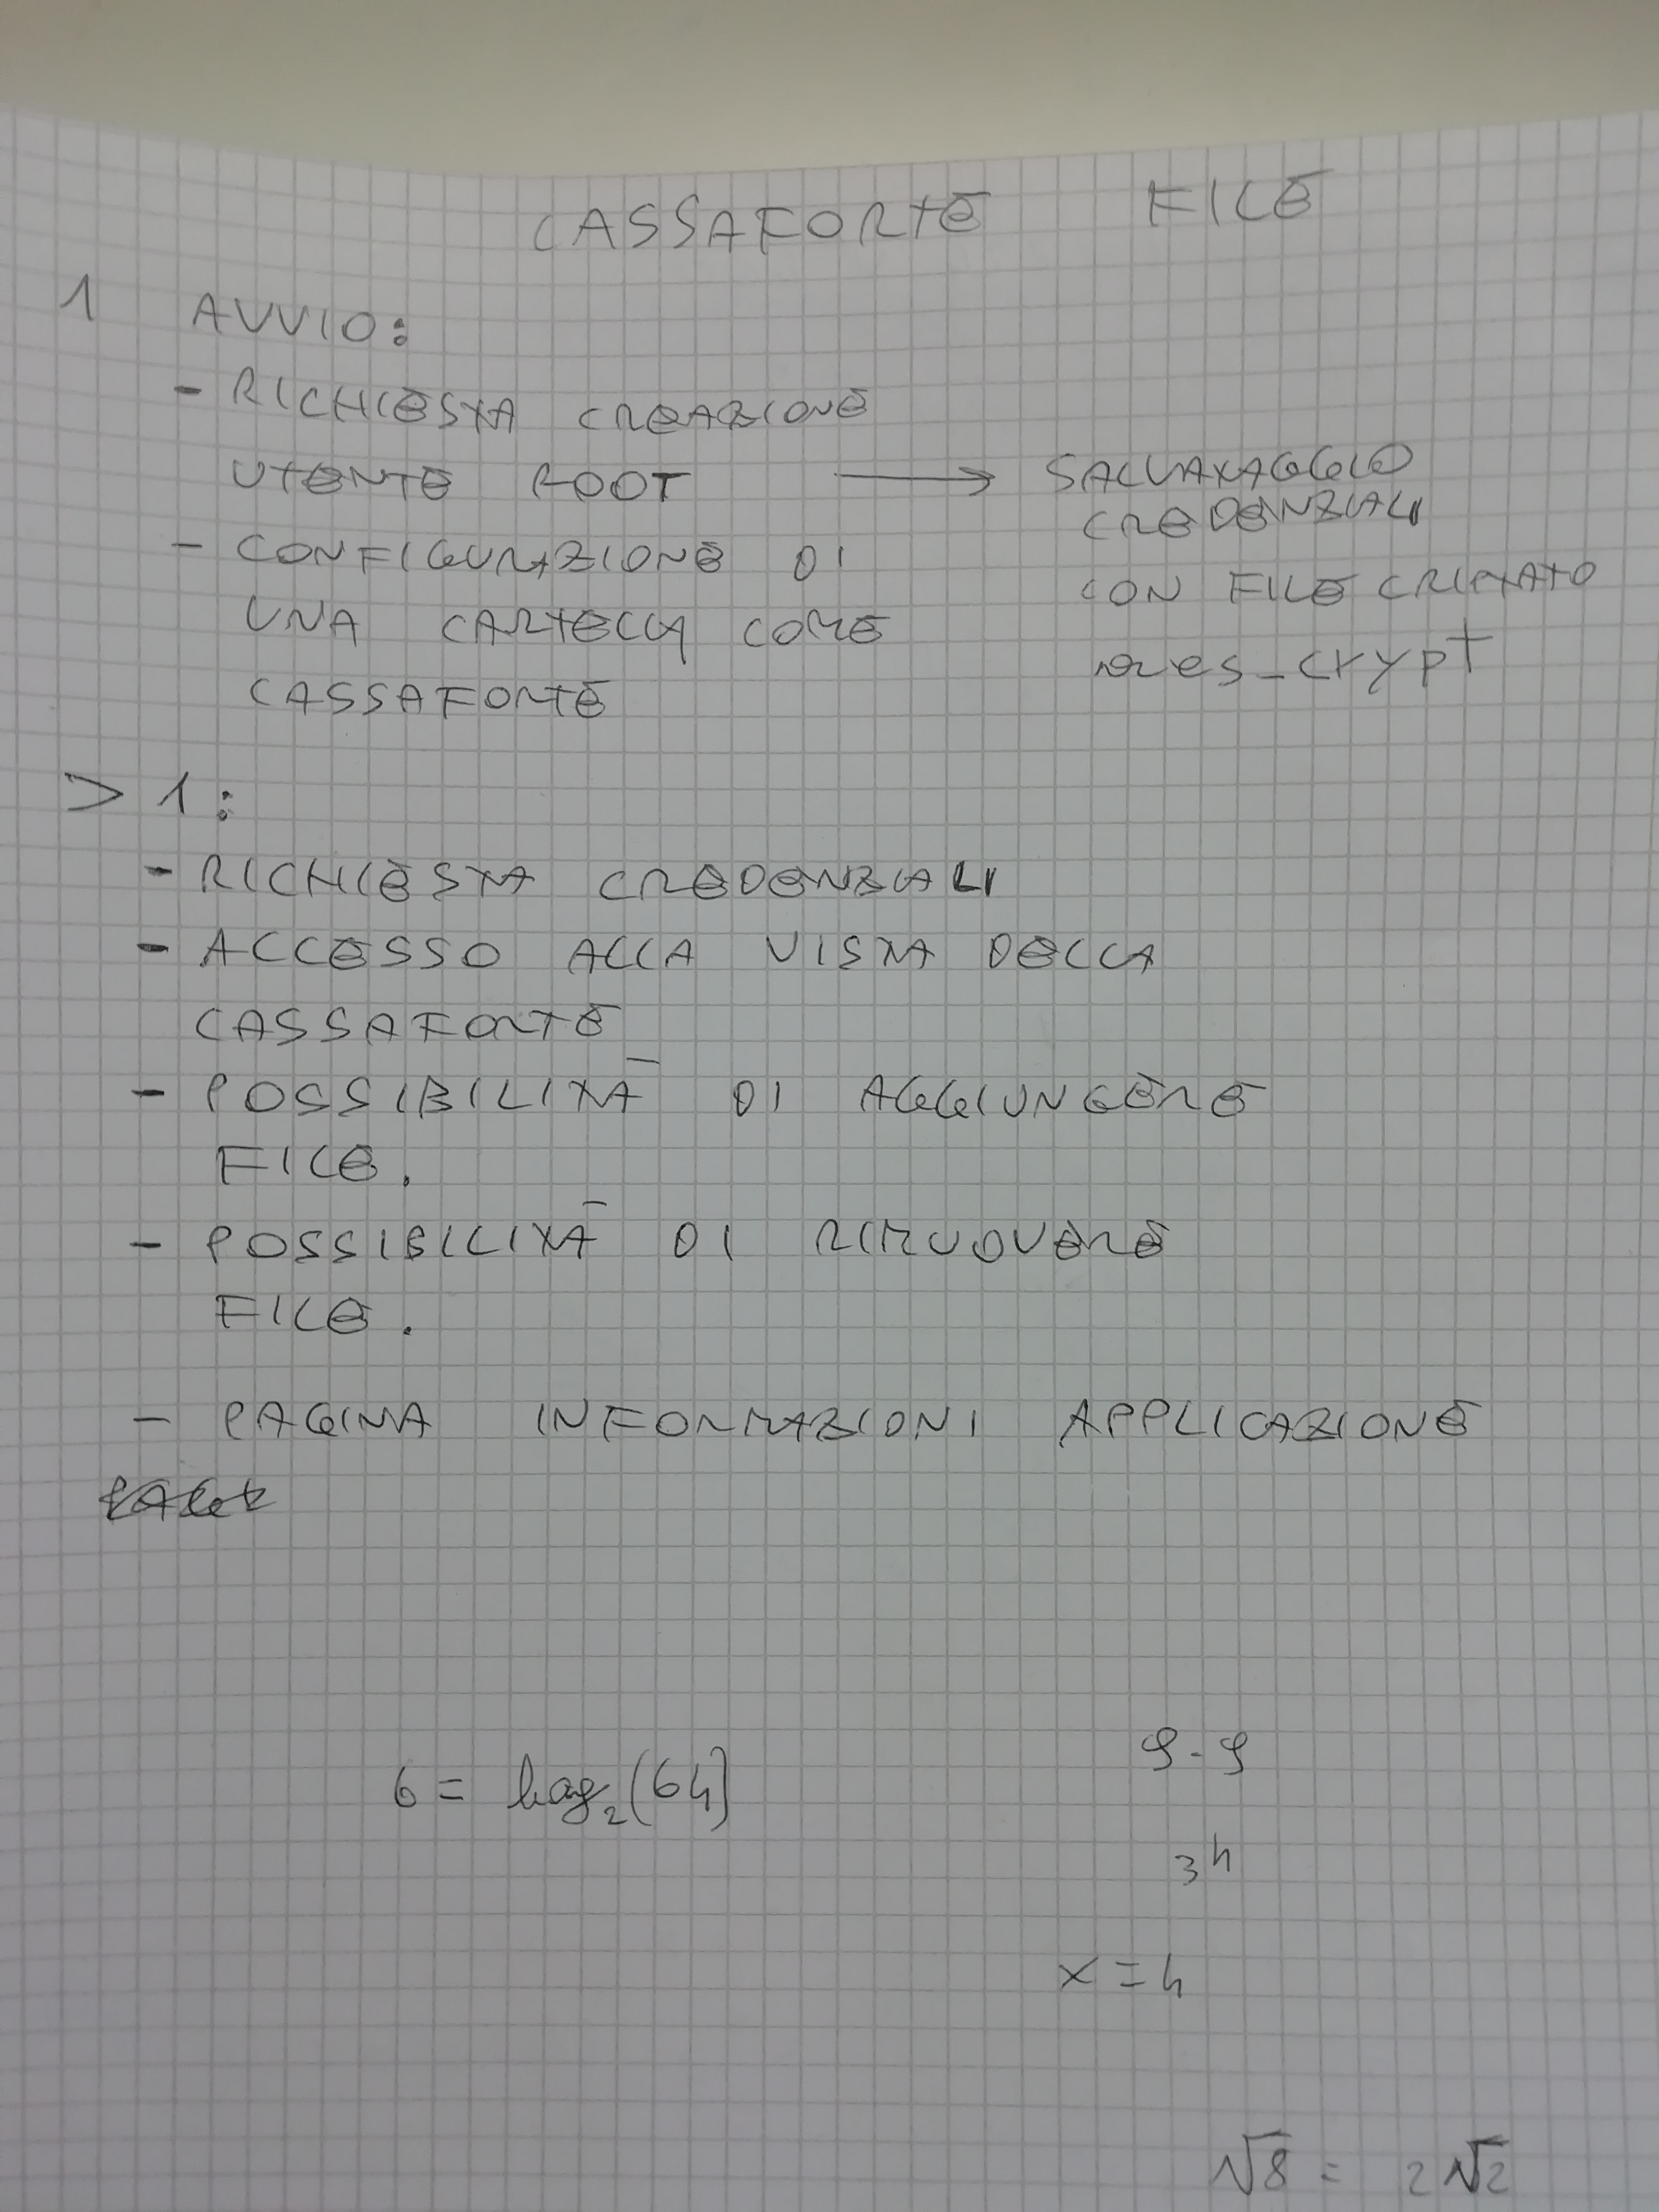 CASSAFORTE FILE
1 AVVIO:
- RICHIESTA CREAZIONE
UTENTE ROOT → SALVATAGGIO
CREDENZIALI
- CONFIGURAZIONE DI
CON FILE CRIPTATO
UNA CARTELLA COME
_crypt
CASSAFORTE
> 1:
- RICHIESTA CREDENZIALI
- ACCESSO ALLA VISTA DELLA
CASSAFORTE
- POSSIBILITÀ DI AGGIUNGERE
FILE.
- POSSIBILITÀ DI RIMUOVERE
FILE.
- PAGINA INFORMAZIONI APPLICAZIONE
9-9
6 = log₂(64)
3⁴
x = 4
√8 = 2√2